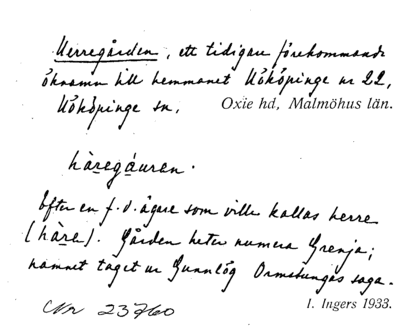 Herregården, ett tidigare förekommande
öknamn till hemmanet Kököpinge nr 22,
Kököpinge sn, Oxie hd, Malmöhus län.
hàregáuran.
Efter en f.d. ägare som ville kallas herre
(hàre). Gården heter numera Grenja;
namnet taget ur Gunnlög Ormstungas saga.
Nr 23760 I. Ingers 1933.